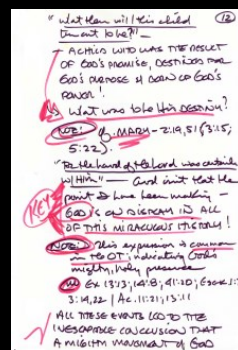 "What then will this child (12)
turn out to be?" –
A CHILD WHO WAS THE RESULT
OF GOD'S PROMISE, DESTINED FOR
GOD'S PURPOSE & BORN OF GOD'S
POWER!
What was to be His DESTINY?
NOTE: cf. MARY – 2:19, 51 (3:15;
5:22).
"For the hand of the Lord was certainly
w/ HIM" — and isn't that the
KEY point I have been making –
GOD IS ON DISPLAY IN ALL
OF THIS MIRACULOUS HISTORY!
NOTE: This expression is common
in the OT; indicating God's
mighty, holy presence
Ex 13:3; 14:8;
3:14, 22 | Ac. 11:21; 13:11
ALL THESE EVENTS LED TO THE
INESCAPABLE CONCLUSION THAT
A MIGHTY MOVEMENT OF GOD